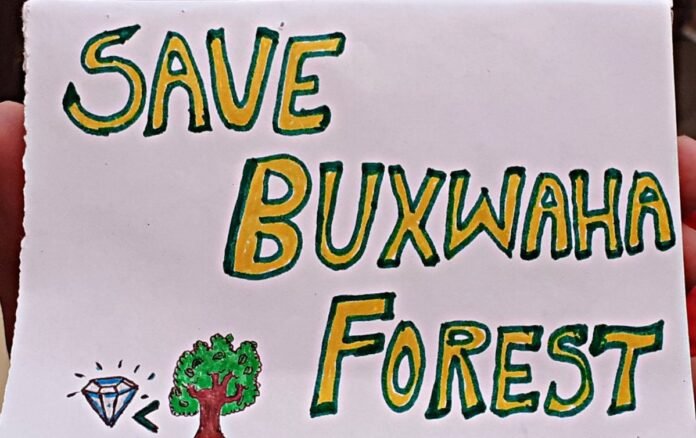 SAVE
BUXWAHA
FOREST
<